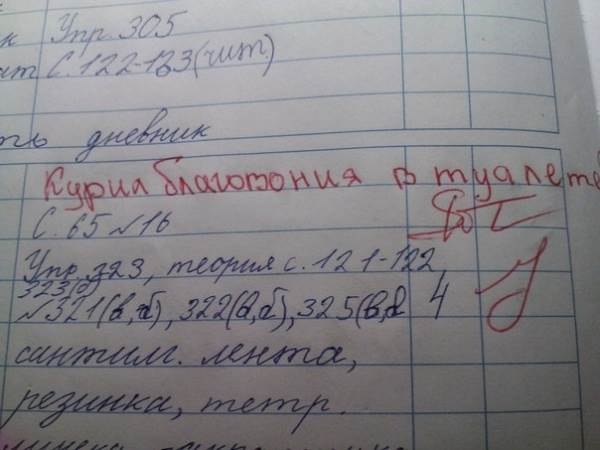 Упр. 305
С. 122-123 (чит.)
дневник
Курил благовония в туалете
С. 65 №16
Упр. 323, теория с. 121-122,
323(б)
№321(в,б), 322(а,б), 325(в,
4
сантим. лента,
резинка, тетр.